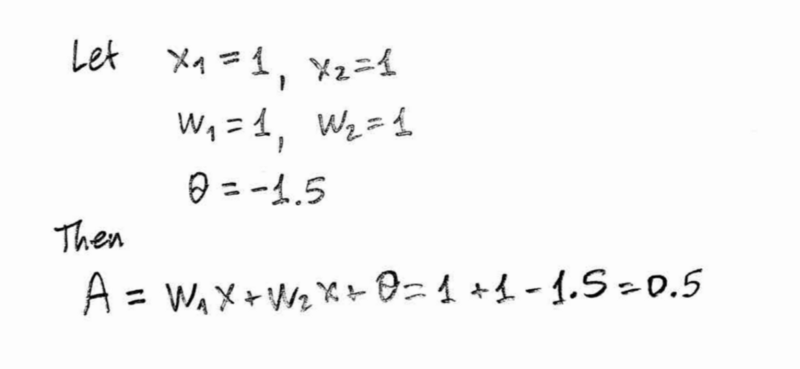 Let x₁ = 1, x₂ = 1
w₁ = 1, w₂ = 1
θ = -1.5
Then
A = w₁x + w₂x + θ = 1 + 1 - 1.5 = 0.5